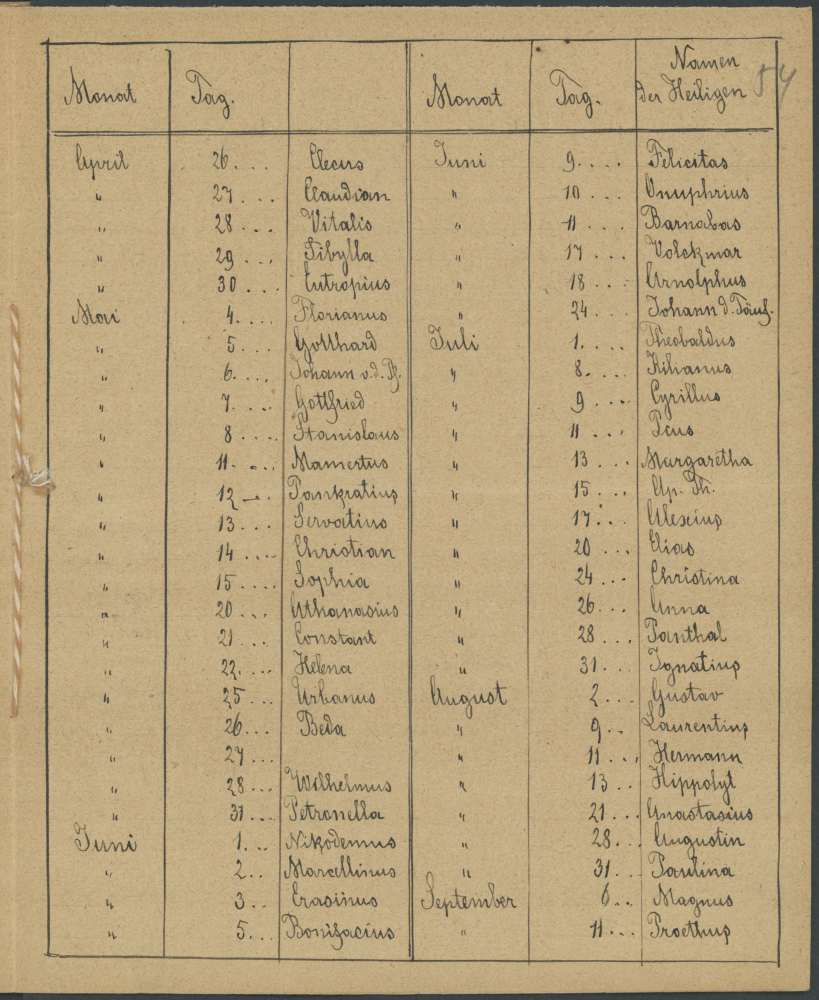 Namen
Monat Tag. Monat Tag. der Heiligen 54
April 26. . . Clecus Juni 9. . . . Felicitas
" 27 . . . Claudian " 10 . . . Onuphrius
" 28 . . . Vitalis " 11 . . . Barnabas
" 29 . . . Sibylla " 17 . . . Volckmar
" 30 . . . Eutropius " 18 . . . Arnolphus
Mai 4. . . . Florianus " 24 . . . Johann d. Täuf.
" 5. . . . Gotthard Juli 1. . . . Theobaldus
" 6. . . . Johann v. d. Pf. " 8. . . . Kilianus
" 7. . . . Gottfried " 9 . . . Cyrillus
" 8 . . . . Stanislaus " 11 . . . Pius
" 11. . . . Mamertus " 13 . . . Margaretha
" 12 . . . Pankratius " 15 . . . Ap. Th.
" 13. . . Servatius " 17. . . Alexius
" 14 . . . . Christian " 20 . . . Elias
" 15 . . . . Sophia " 24 . . . Christina
" 20 . . . Athanasius " 26. . . Anna
" 21 . . . Constant " 28 . . . Panthal
" 22. . . . Helena " 31. . . Ignatius
" 25 . . . Urbanus August 2. . . Gustav
" 26. . . Beda " 9. . Laurentius
" 27 . . . " 11 . . . Hermann
" 28 . . . Wilhelmus " 13 . . Hippolyt
" 31 . . . Petronella " 21 . . . Anastasius
Juni 1. . . Nikodemus " 28. . . Augustin
" 2. . . Marcellinus " 31. . . Paulina
" 3. . . Erasimus September 6. . . Magnus
" 5. . . Bonifacius " 11 . . . Proethus